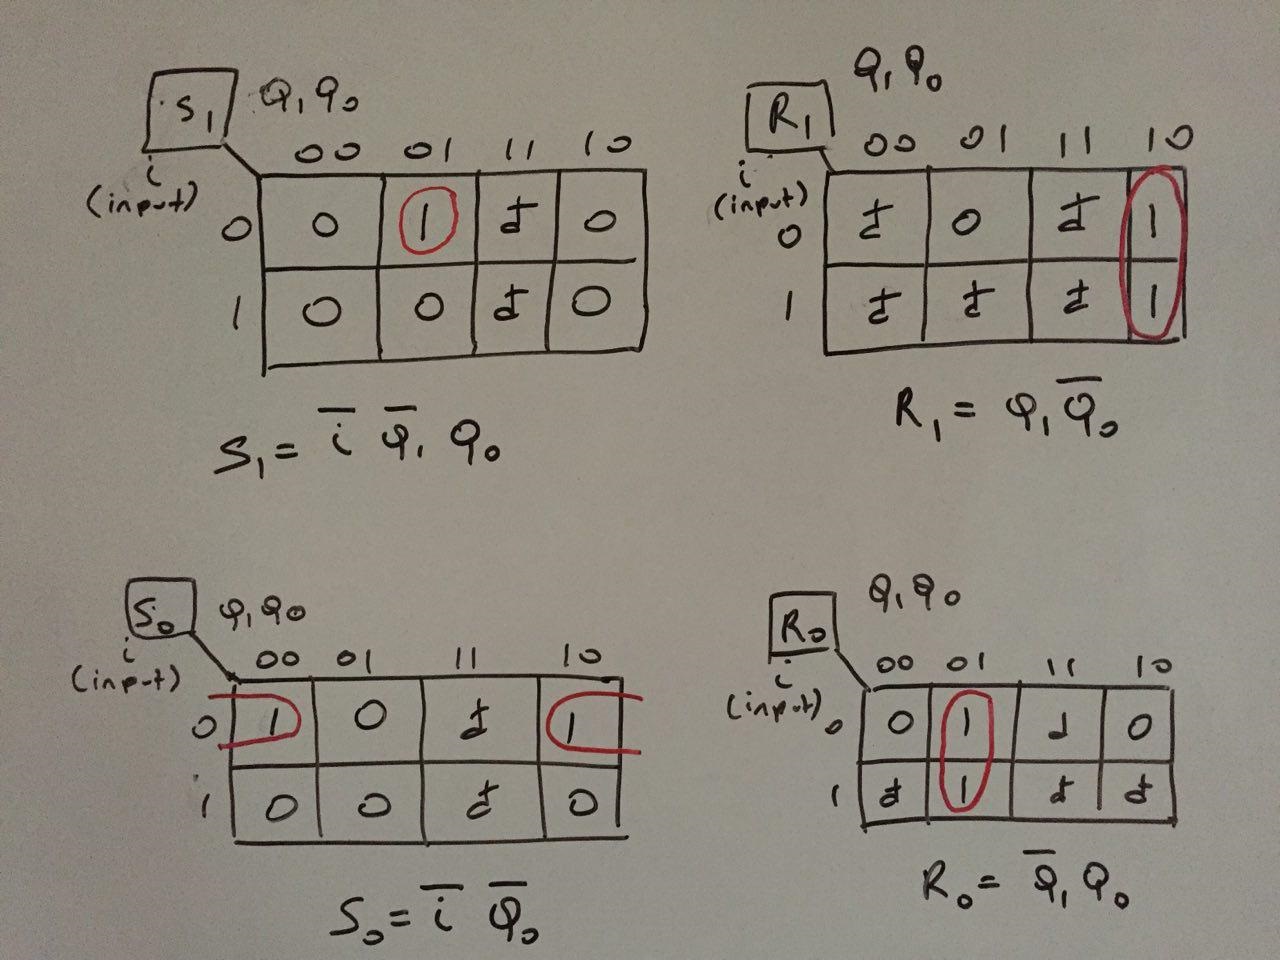 S₁ Q₁Q₀
i
(input)
00 01 11 10
0 0 1 d 0
1 0 0 d 0
S₁ = i̅ Q̅₁ Q₀
R₁ Q₁Q₀
i
(input)
00 01 11 10
0 d 0 d 1
1 d d d 1
R₁ = Q₁Q̅₀
S₀ Q₁Q₀
i
(input)
00 01 11 10
0 1 0 d 1
1 0 0 d 0
S₀ = i̅ Q̅₀
R₀ Q₁Q₀
i
(input)
00 01 11 10
0 0 1 d 0
1 d 1 d d
R₀ = Q̅₁ Q₀